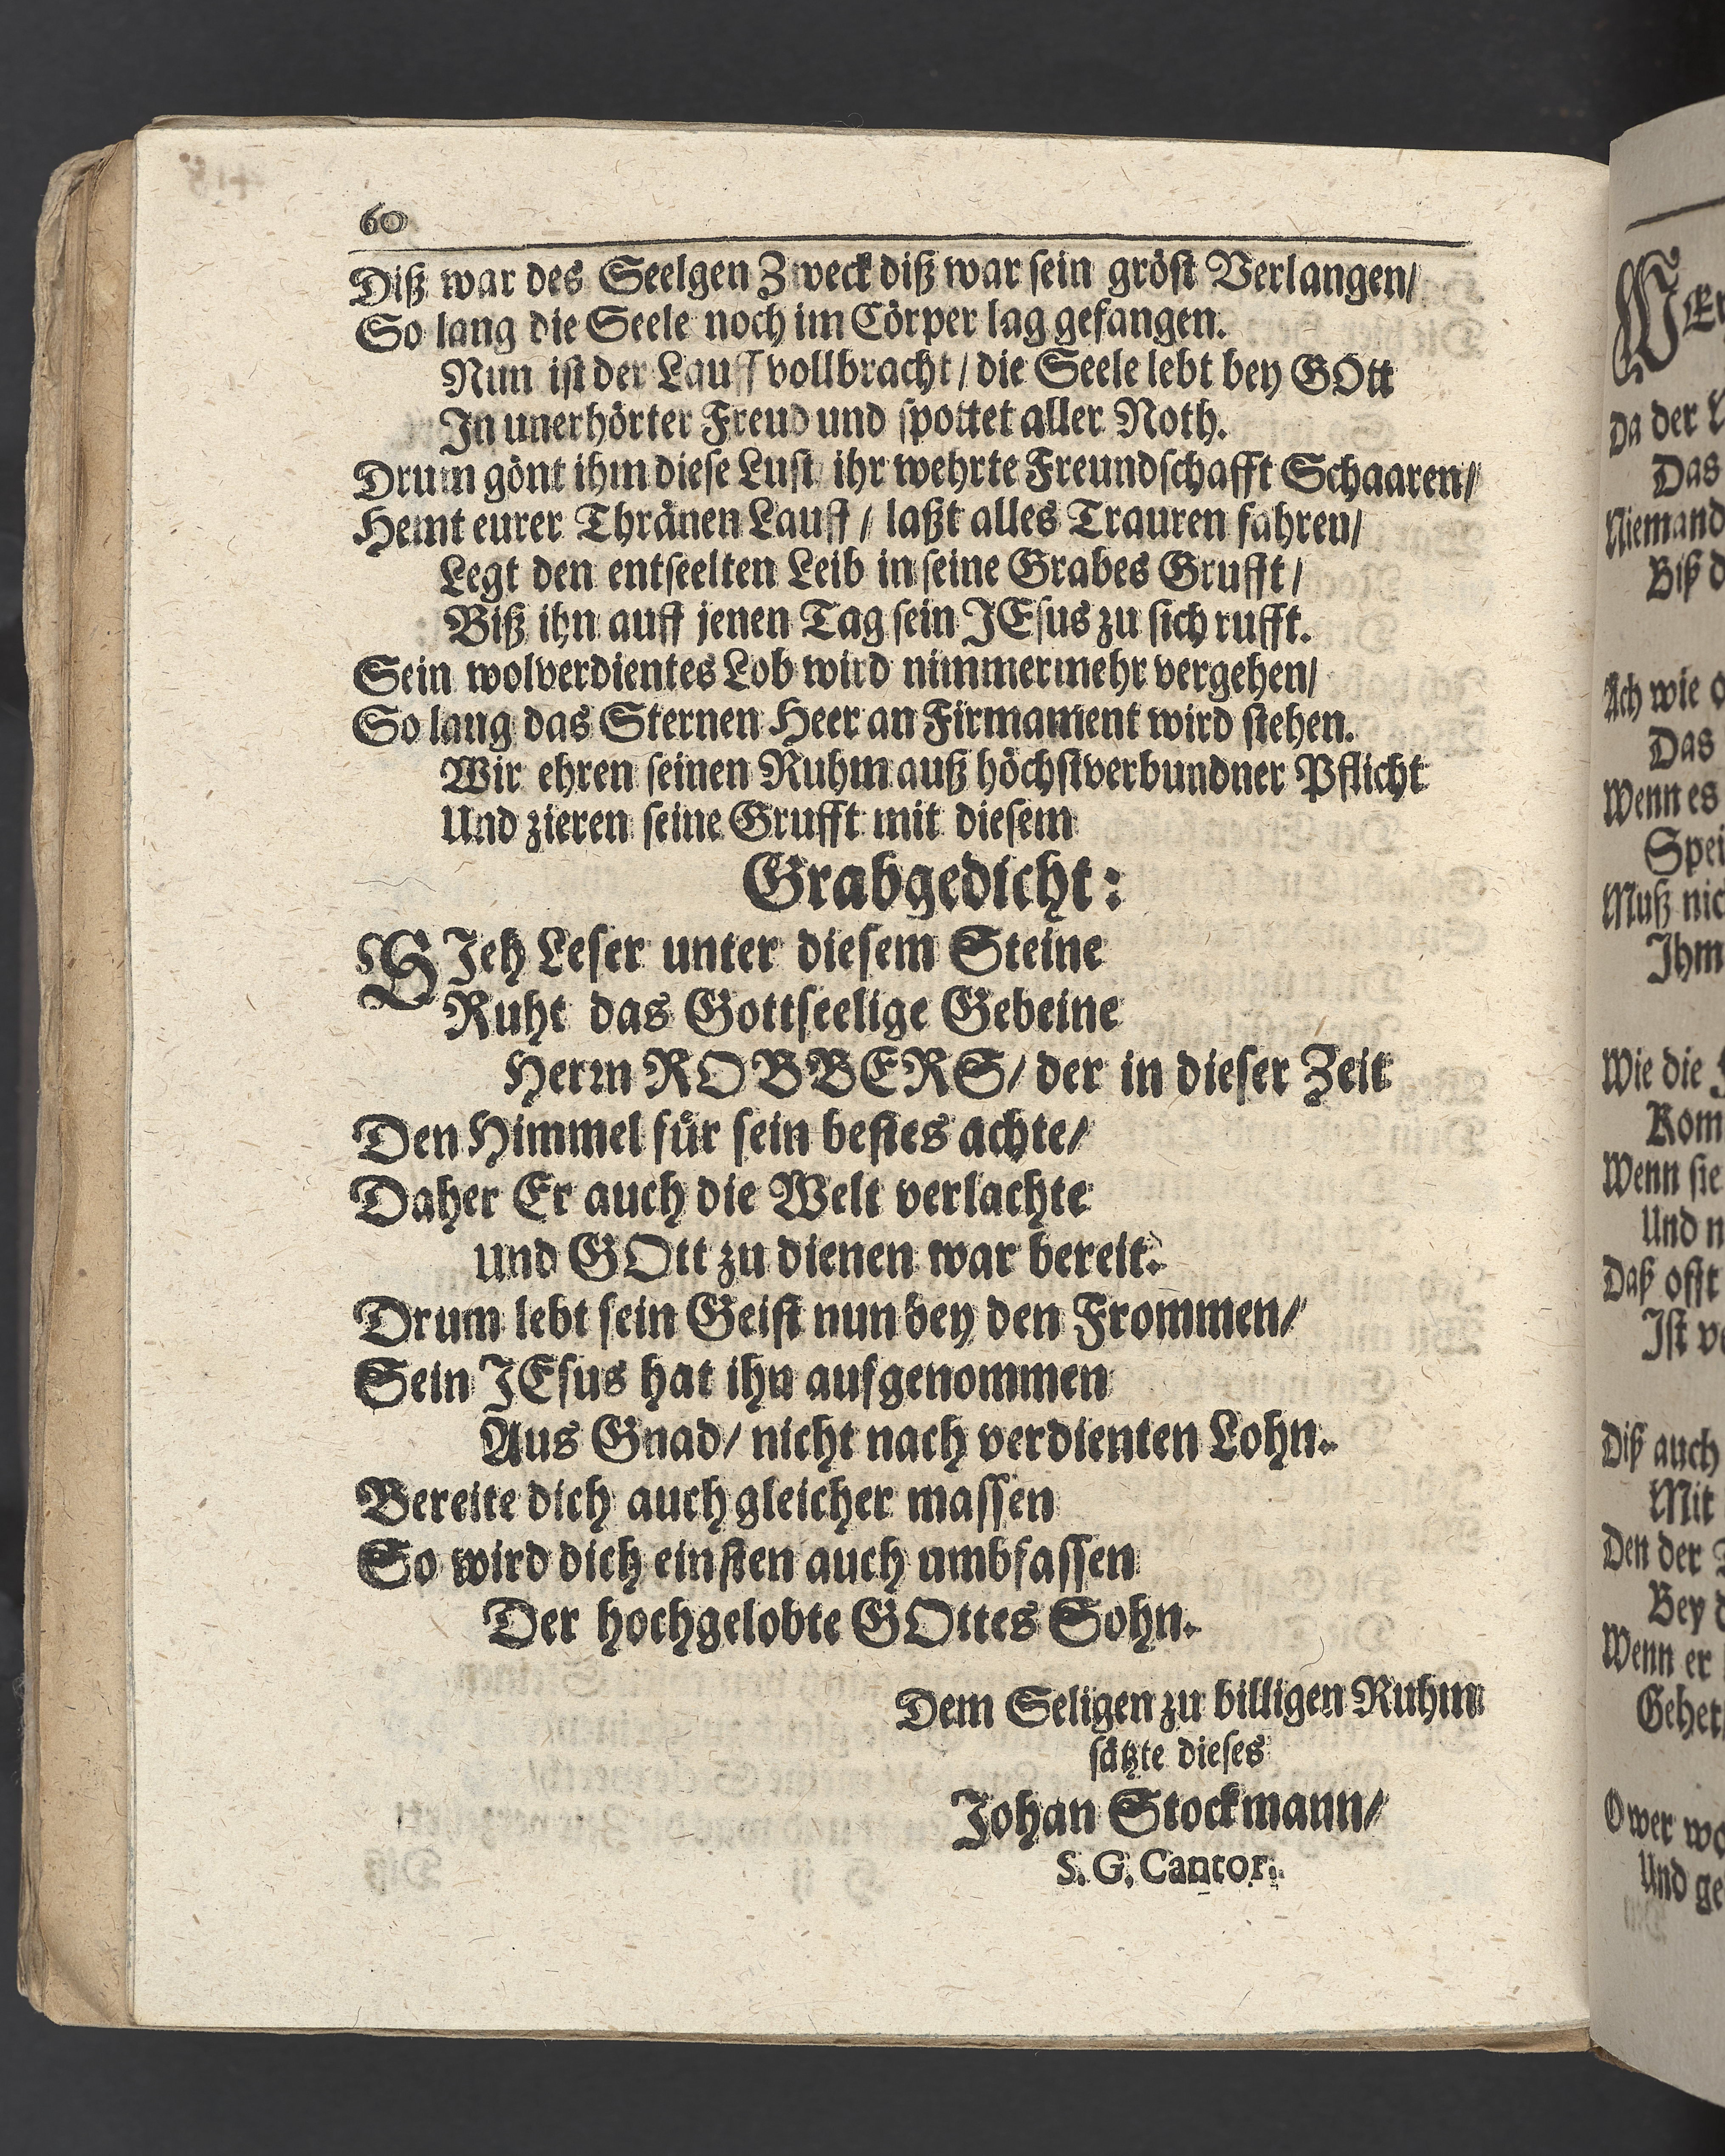 60
Diß war des Seelgen Zweck diß war sein gröst Verlangen/
So lang die Seele noch im Cörper lag gefangen.
Nun ist der Lauff vollbracht / die Seele lebt bey GOtt
In unerhörter Freud und spottet aller Noth.
Drum gönt ihm diese Lust ihr wehrte Freundschafft Schaaren/
Hemt eurer Thränen Lauff / laßt alles Trauren fahren/
Legt den entseelten Leib in seine Grabes Grufft /
Biß ihn auff jenen Tag sein JEsus zu sich rufft.
Sein wolverdientes Lob wird nimmermehr vergehen/
So lang das Sternen Heer an Firmament wird stehen.
Wir ehren seinen Ruhm auß höchstverbundner Pflicht
Und zieren seine Grufft mit diesem
Grabgedicht:
SJeh Leser unter diesem Steine
Ruht das Gottseelige Gebeine
Herrn ROBBERS/ der in dieser Zeit
Den Himmel für sein bestes achte/
Daher Er auch die Welt verlachte
und GOtt zu dienen war bereit.
Drum lebt sein Geist nun bey den Frommen/
Sein JEsus hat ihn aufgenommen
Aus Gnad/ nicht nach verdienten Lohn.
Bereite dich auch gleicher massen
So wird dich einsten auch umbfassen
Der hochgelobte GOttes Sohn.
Dem Seligen zu billigen Ruhm
sätzte dieses
Johan Stockmann/
S. G. Cantor.
WEr
Da der
Das
Niemand
Biß
Ach wie
Das
Wenn es
Muß
Ihm
Wie die
Wenn sie
Und
Daß offt
Ist
Diß auch
Mit
Den der
Bey
Wenn er
O wer
Und